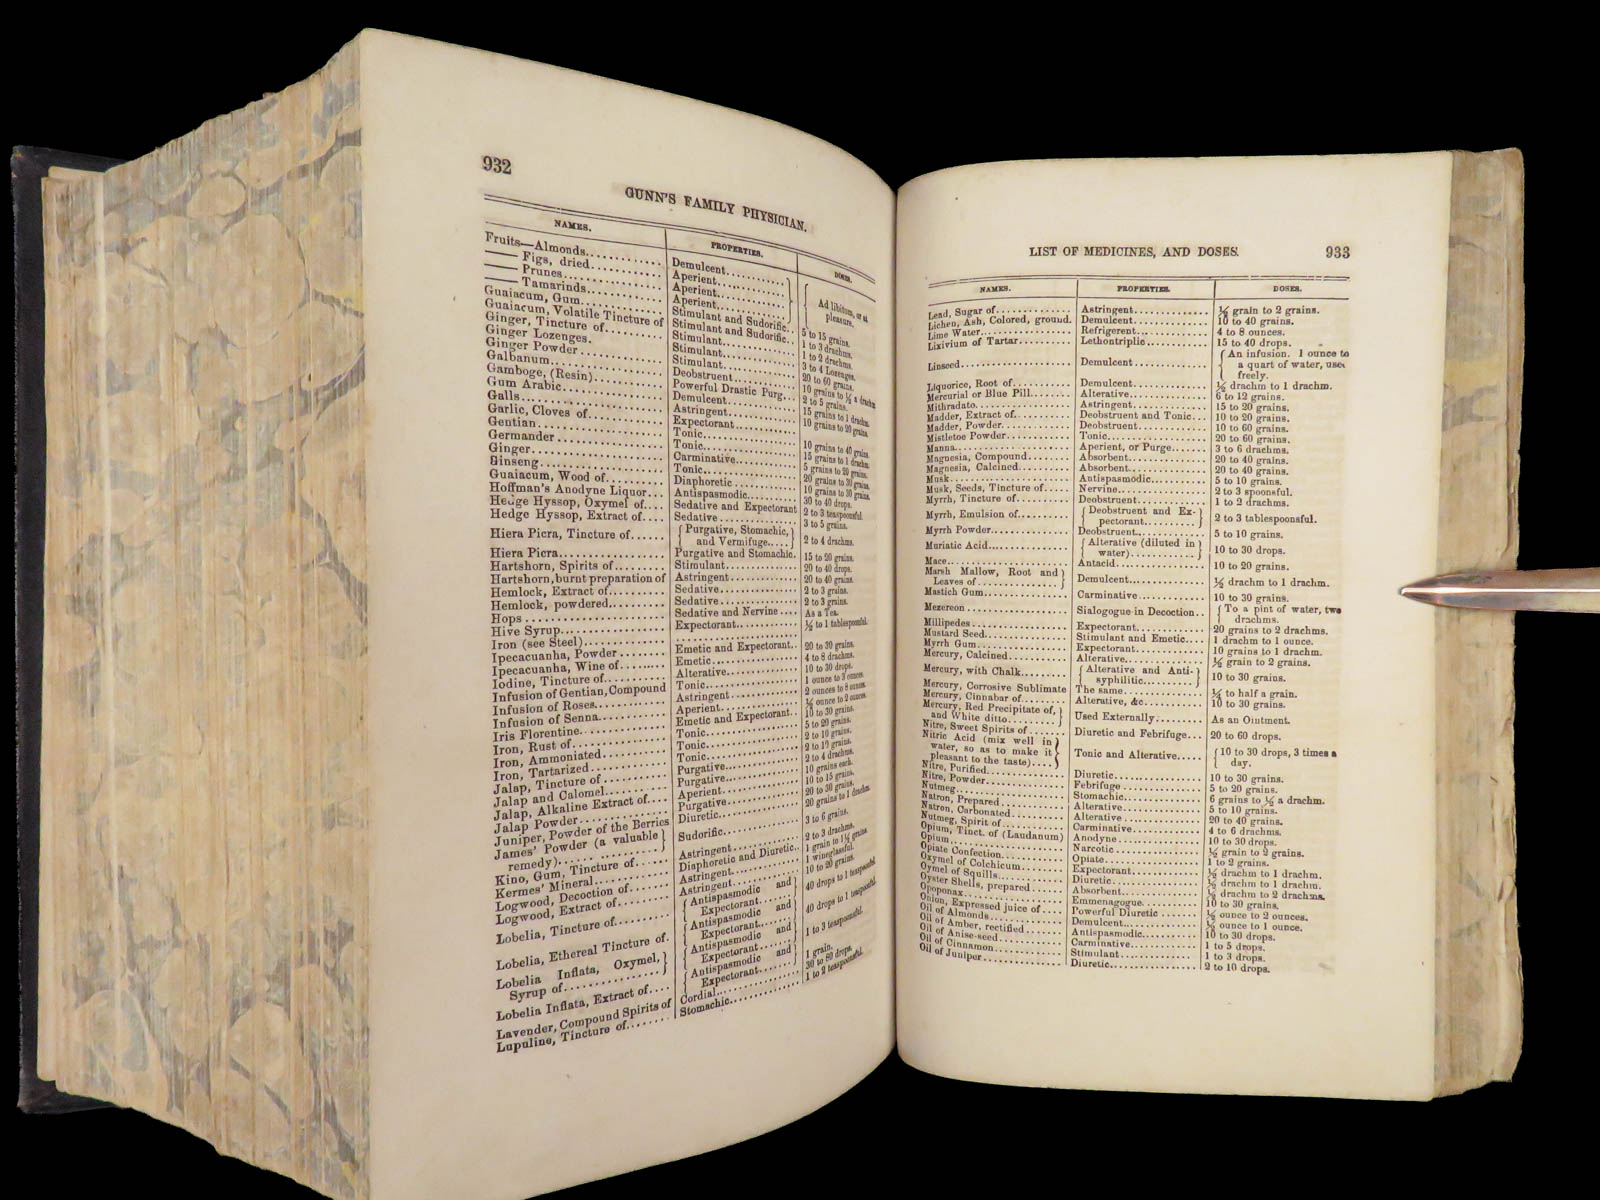 932
GUNN'S FAMILY PHYSICIAN.
NAMES. PROPERTIES. DOSES.
Fruits—Almonds Demulcent
—— Figs, dried Aperient
—— Prunes Aperient
—— Tamarinds Aperient
Ad libitum, or at
pleasure.
Guaiacum, Gum Stimulant and Sudorific 5 to 15 grains.
Guaiacum, Volatile Tincture of Stimulant and Sudorific 1 to 3 drachms.
Ginger, Tincture of Stimulant 1 to 2 drachms.
Ginger Lozenges. Stimulant 3 to 4 Lozenges.
Ginger Powder Stimulant 20 to 60 grains.
Galbanum Deobstruent 10 grains to ½ a drachm
Gamboge, (Resin) Powerful Drastic Purg 2 to 5 grains.
Gum Arabic Demulcent 15 grains to 1 drachm.
Galls Astringent 10 grains to 20 grains.
Garlic, Cloves of Expectorant
Gentian Tonic 10 grains to 40 grains.
Germander Tonic 15 grains to 1 drachm.
Ginger Carminative 5 grains to 20 grains.
Ginseng Tonic 20 grains to 30 grains.
Guaiacum, Wood of Diaphoretic 10 grains to 30 grains.
Hoffman's Anodyne Liquor Antispasmodic 30 to 40 drops.
Hedge Hyssop, Oxymel of Sedative and Expectorant 2 to 3 teaspoonsful.
Hedge Hyssop, Extract of Sedative 3 to 5 grains.
Hiera Picra, Tincture of Purgative, Stomachic, and Vermifuge 2 to 4 drachms.
Hiera Picra Purgative and Stomachic. 15 to 20 grains.
Hartshorn, Spirits of Stimulant 20 to 40 drops.
Hartshorn, burnt preparation of Astringent 20 to 40 grains.
Hemlock, Extract of Sedative 2 to 3 grains.
Hemlock, powdered Sedative 2 to 3 grains.
Hops Sedative and Nervine As a Tea.
Hive Syrup Expectorant ½ to 1 tablespoonful.
Iron (see Steel)
Ipecacuanha, Powder Emetic and Expectorant 20 to 30 grains.
Ipecacuanha, Wine of Emetic 4 to 8 drachms.
Iodine, Tincture of Alterative 10 to 30 drops.
Infusion of Gentian, Compound Tonic 1 ounce to 3 ounces.
Infusion of Roses Astringent 2 ounces to 8 ounces.
Infusion of Senna Aperient ½ ounce to 2 ounces.
Iris Florentine Emetic and Expectorant 10 to 30 grains.
Iron, Rust of Tonic 5 to 20 grains.
Iron, Ammoniated Tonic 2 to 10 grains.
Iron, Tartarized Tonic 2 to 10 grains.
Jalap, Tincture of Purgative 2 to 4 drachms.
Jalap and Calomel Purgative 10 grains each.
Jalap, Alkaline Extract of Aperient 10 to 15 grains.
Jalap Powder Purgative 20 to 30 grains.
Juniper, Powder of the Berries Diuretic 20 grains to 1 drachm.
James' Powder (a valuable
remedy) Sudorific 3 to 6 grains.
Kino, Gum, Tincture of Astringent 2 to 3 drachms.
Kermes' Mineral Diaphoretic and Diuretic 1 grain to 1½ grains
Logwood, Decoction of Astringent 1 wineglassful.
Logwood, Extract of Astringent 10 to 20 grains.
Lobelia, Tincture of Antispasmodic and Expectorant 40 drops to 1 teaspoonful
Lobelia, Ethereal Tincture of. Antispasmodic and Expectorant 40 drops to 1 teaspoonful.
Lobelia Inflata, Oxymel,
Syrup of Antispasmodic and Expectorant 1 to 3 teaspoonsful.
Lobelia Inflata, Extract of Antispasmodic and Expectorant 1 grain.
Lavender, Compound Spirits of Cordial 30 to 80 drops.
Lupuline, Tincture of Stomachic 1 to 2 teaspoonsful.
LIST OF MEDICINES, AND DOSES. 933
NAMES. PROPERTIES. DOSES.
Lead, Sugar of Astringent ½ grain to 2 grains.
Lichen, Ash, Colored, ground. Demulcent 10 to 40 grains.
Lime Water Refrigerent 4 to 8 ounces.
Lixivium of Tartar Lethontriplic 15 to 40 drops.
Linseed Demulcent An infusion. 1 ounce to
a quart of water, used
freely.
Liquorice, Root of Demulcent ½ drachm to 1 drachm.
Mercurial or Blue Pill Alterative 6 to 12 grains.
Mithradato Astringent 15 to 20 grains.
Madder, Extract of Deobstruent and Tonic 10 to 20 grains.
Madder, Powder Deobstruent 10 to 60 grains.
Mistletoe Powder Tonic 20 to 60 grains.
Manna Aperient, or Purge 3 to 6 drachms.
Magnesia, Compound Absorbent 20 to 40 grains.
Magnesia, Calcined Absorbent 20 to 40 grains.
Musk Antispasmodic 5 to 10 grains.
Musk, Seeds, Tincture of Nervine 2 to 3 spoonsful.
Myrrh, Tincture of Deobstruent 1 to 2 drachms.
Myrrh, Emulsion of Deobstruent and Ex-
pectorant 2 to 3 tablespoonsful.
Myrrh Powder Deobstruent 5 to 10 grains.
Muriatic Acid Alterative (diluted in
water) 10 to 30 drops.
Mace Antacid 10 to 20 grains.
Marsh Mallow, Root and
Leaves of Demulcent ½ drachm to 1 drachm.
Mastich Gum Carminative 10 to 30 grains.
Mezereon Sialogogue in Decoction To a pint of water, two
drachms.
Millipedes Expectorant 20 grains to 2 drachms.
Mustard Seed Stimulant and Emetic 1 drachm to 1 ounce.
Myrrh Gum Expectorant 10 grains to 1 drachm.
Mercury, Calcined Alterative ½ grain to 2 grains.
Mercury, with Chalk Alterative and Anti-
syphilitic 10 to 30 grains.
Mercury, Corrosive Sublimate The same to half a grain.
Mercury, Cinnabar of Alterative, &c 10 to 30 grains.
Mercury, Red Precipitate of,
and White ditto Used Externally As an Ointment.
Nitre, Sweet Spirits of Diuretic and Febrifuge 20 to 60 drops.
Nitric Acid (mix well in
water, so as to make it
pleasant to the taste) Tonic and Alterative 10 to 30 drops, 3 times a
day.
Nitre, Purified Diuretic 10 to 30 grains.
Nitre, Powder Febrifuge 5 to 20 grains.
Nutmeg Stomachic 6 grains to ½ a drachm.
Natron, Prepared Alterative 5 to 10 grains.
Natron, Carbonated Alterative 20 to 40 grains.
Nutmeg, Spirit of Carminative 4 to 6 drachms.
Opium, Tinct. of (Laudanum) Anodyne 10 to 30 drops.
Opium Narcotic ½ grain to 2 grains.
Opiate Confection Opiate 1 to 2 grains.
Oxymel of Colchicum Expectorant ½ drachm to 1 drachm.
Oymel of Squills Diuretic ½ drachm to 1 drachm.
Oyster Shells, prepared Absorbent ½ drachm to 2 drachms.
Opoponax Emmenagogue 10 to 30 grains.
Onion, Expressed juice of Powerful Diuretic ½ ounce to 2 ounces.
Oil of Almonds Demulcent ½ ounce to 1 ounce.
Oil of Amber, rectified Antispasmodic 10 to 30 drops.
Oil of Anise-seed Carminative 1 to 5 drops.
Oil of Cinnamon Stimulant 1 to 3 drops.
Oil of Juniper Diuretic 2 to 10 drops.